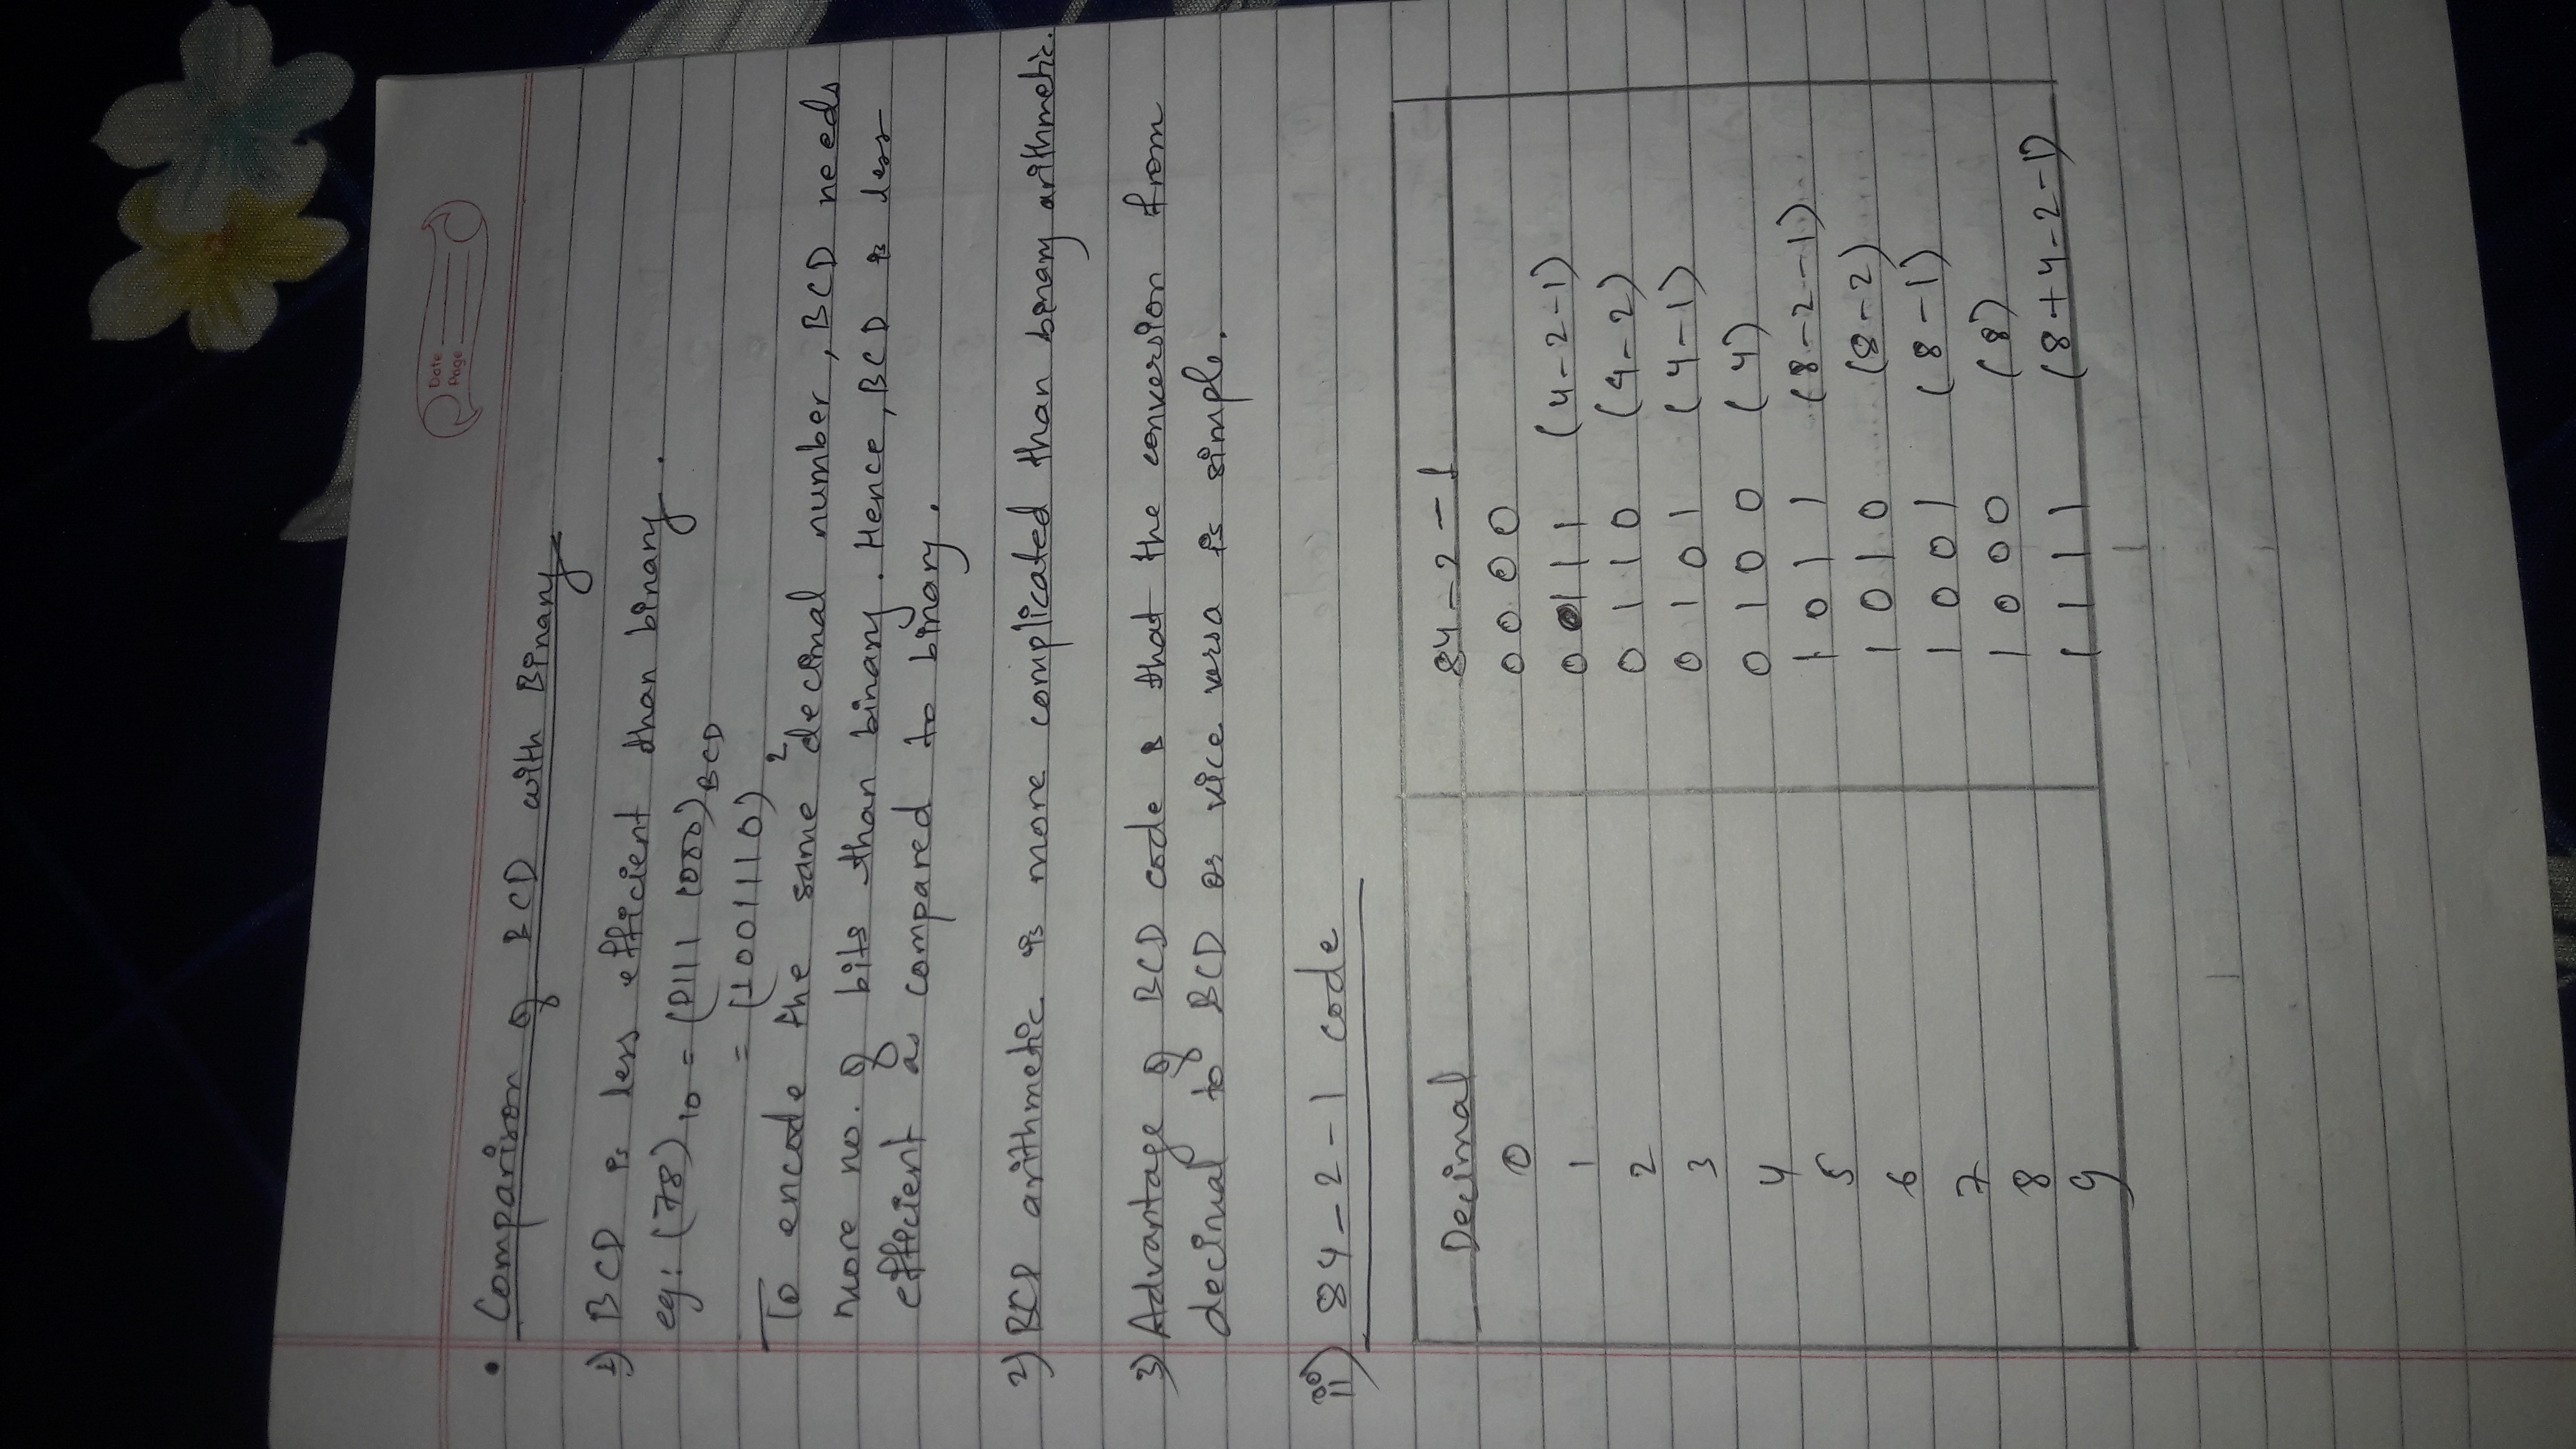 Date
Page
• Comparison of BCD with Binary
1) BCD is less efficient than binary.
eg: (78)10 = (0111 1000)BCD
= (1001110)2
To encode the same decimal number, BCD needs
more no. of bits than binary. Hence, BCD is less
efficient as compared to binary.
2) BCD arithmetic is more complicated than binary arithmetic.
3) Advantage of BCD code is that the conversion from
decimal to BCD or vice versa is simple.
ii) 84-2-1 code
Decimal 84-2-1
0 0000
1 0111 (4-2-1)
2 0110 (4-2)
3 0101 (4-1)
4 0100 (4)
5 1011 (8-2-1)
6 1010 (8-2)
7 1001 (8-1)
8 1000 (8)
9 1111 (8+4-2-1)